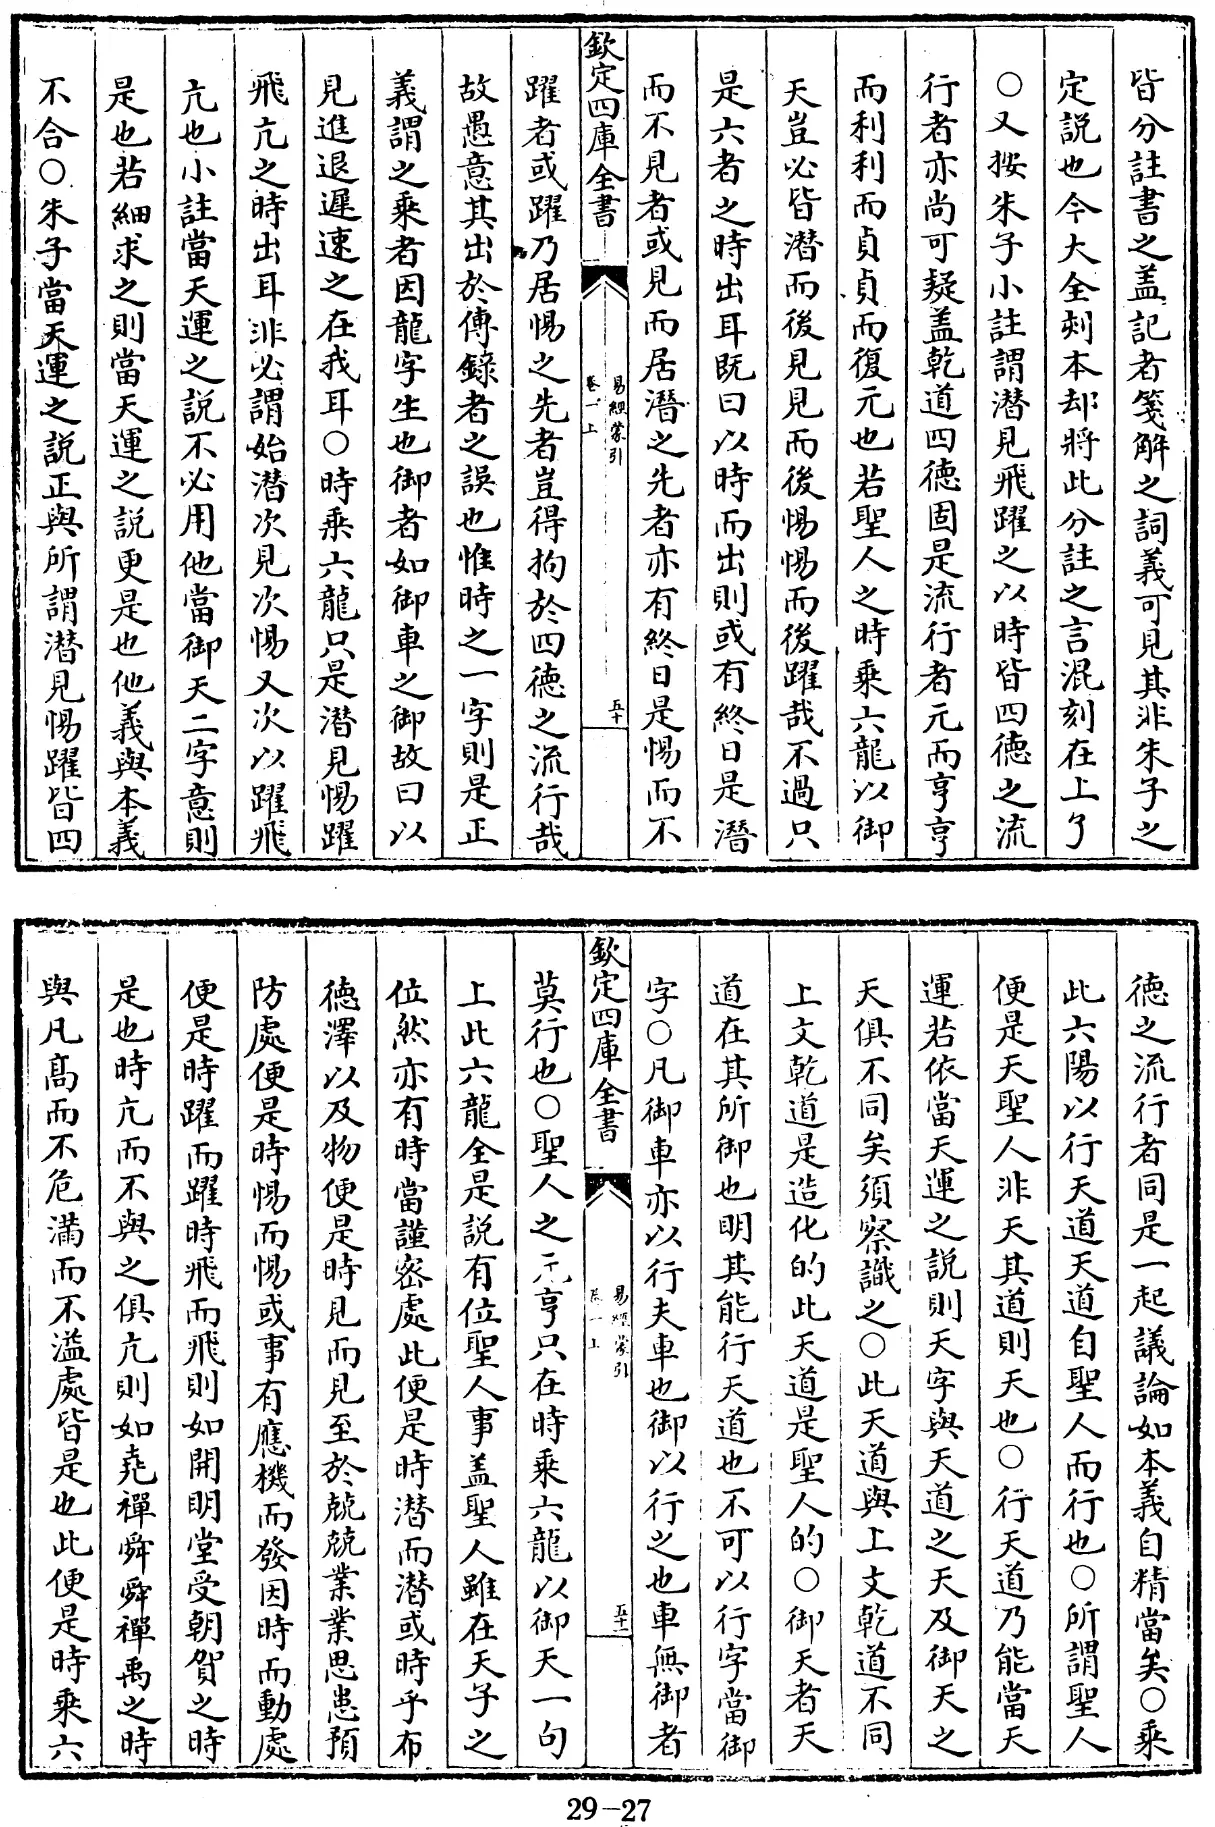 皆分註書之盖記者箋解之詞義可見其非朱子之
定説也今大全刻本却將此分註之言混刻在上了
○又按朱子小註謂潛見飛躍之以時皆四德之流
行者亦尚可疑盖乾道四德固是流行者元而亨亨
而利利而貞貞而復元也若聖人之時乗六龍以御
天豈必皆潛而後見見而後惕惕而後躍哉不過只
是六者之時出耳既曰以時而出則或有終日是潛
而不見者或見而居潛之先者亦有終日是惕而不
欽定四庫全書
易經蒙引
卷一上
五十
躍者或躍乃居惕之先者豈得拘於四德之流行哉
故愚意其出於傳錄者之誤也惟時之一字則是正
義謂之乗者因龍字生也御者如御車之御故曰以
見進退遲速之在我耳○時乗六龍只是潛見惕躍
飛亢之時出耳非必謂始潛次見次惕又次以躍飛
亢也小註當天運之説不必用他當御天二字意則
是也若細求之則當天運之説更是也他義與本義
不合○朱子當天運之説正與所謂潛見惕躍皆四
德之流行者同是一起議論如本義自精當矣○乗
此六陽以行天道天道自聖人而行也○所謂聖人
便是天聖人非天其道則天也○行天道乃能當天
運若依當天運之説則天字與天道之天及御天之
天俱不同矣須察識之○此天道與上文乾道不同
上文乾道是造化的此天道是聖人的○御天者天
道在其所御也明其能行天道也不可以行字當御
字○凡御車亦以行夫車也御以行之也車無御者
欽定四庫全書
易經蒙引
卷一上
五十一
莫行也○聖人之元亨只在時乗六龍以御天一句
上此六龍全是説有位聖人事盖聖人雖在天子之
位然亦有時當謹密處此便是時潛而潛或時乎布
德澤以及物便是時見而見至於兢兢業業思患預
防處便是時惕而惕或事有應機而發因時而動處
便是時躍而躍時飛而飛則如開明堂受朝賀之時
是也時亢而不與之俱亢則如堯禪舜舜禪禹之時
與凡髙而不危滿而不溢處皆是也此便是時乗六
29-27